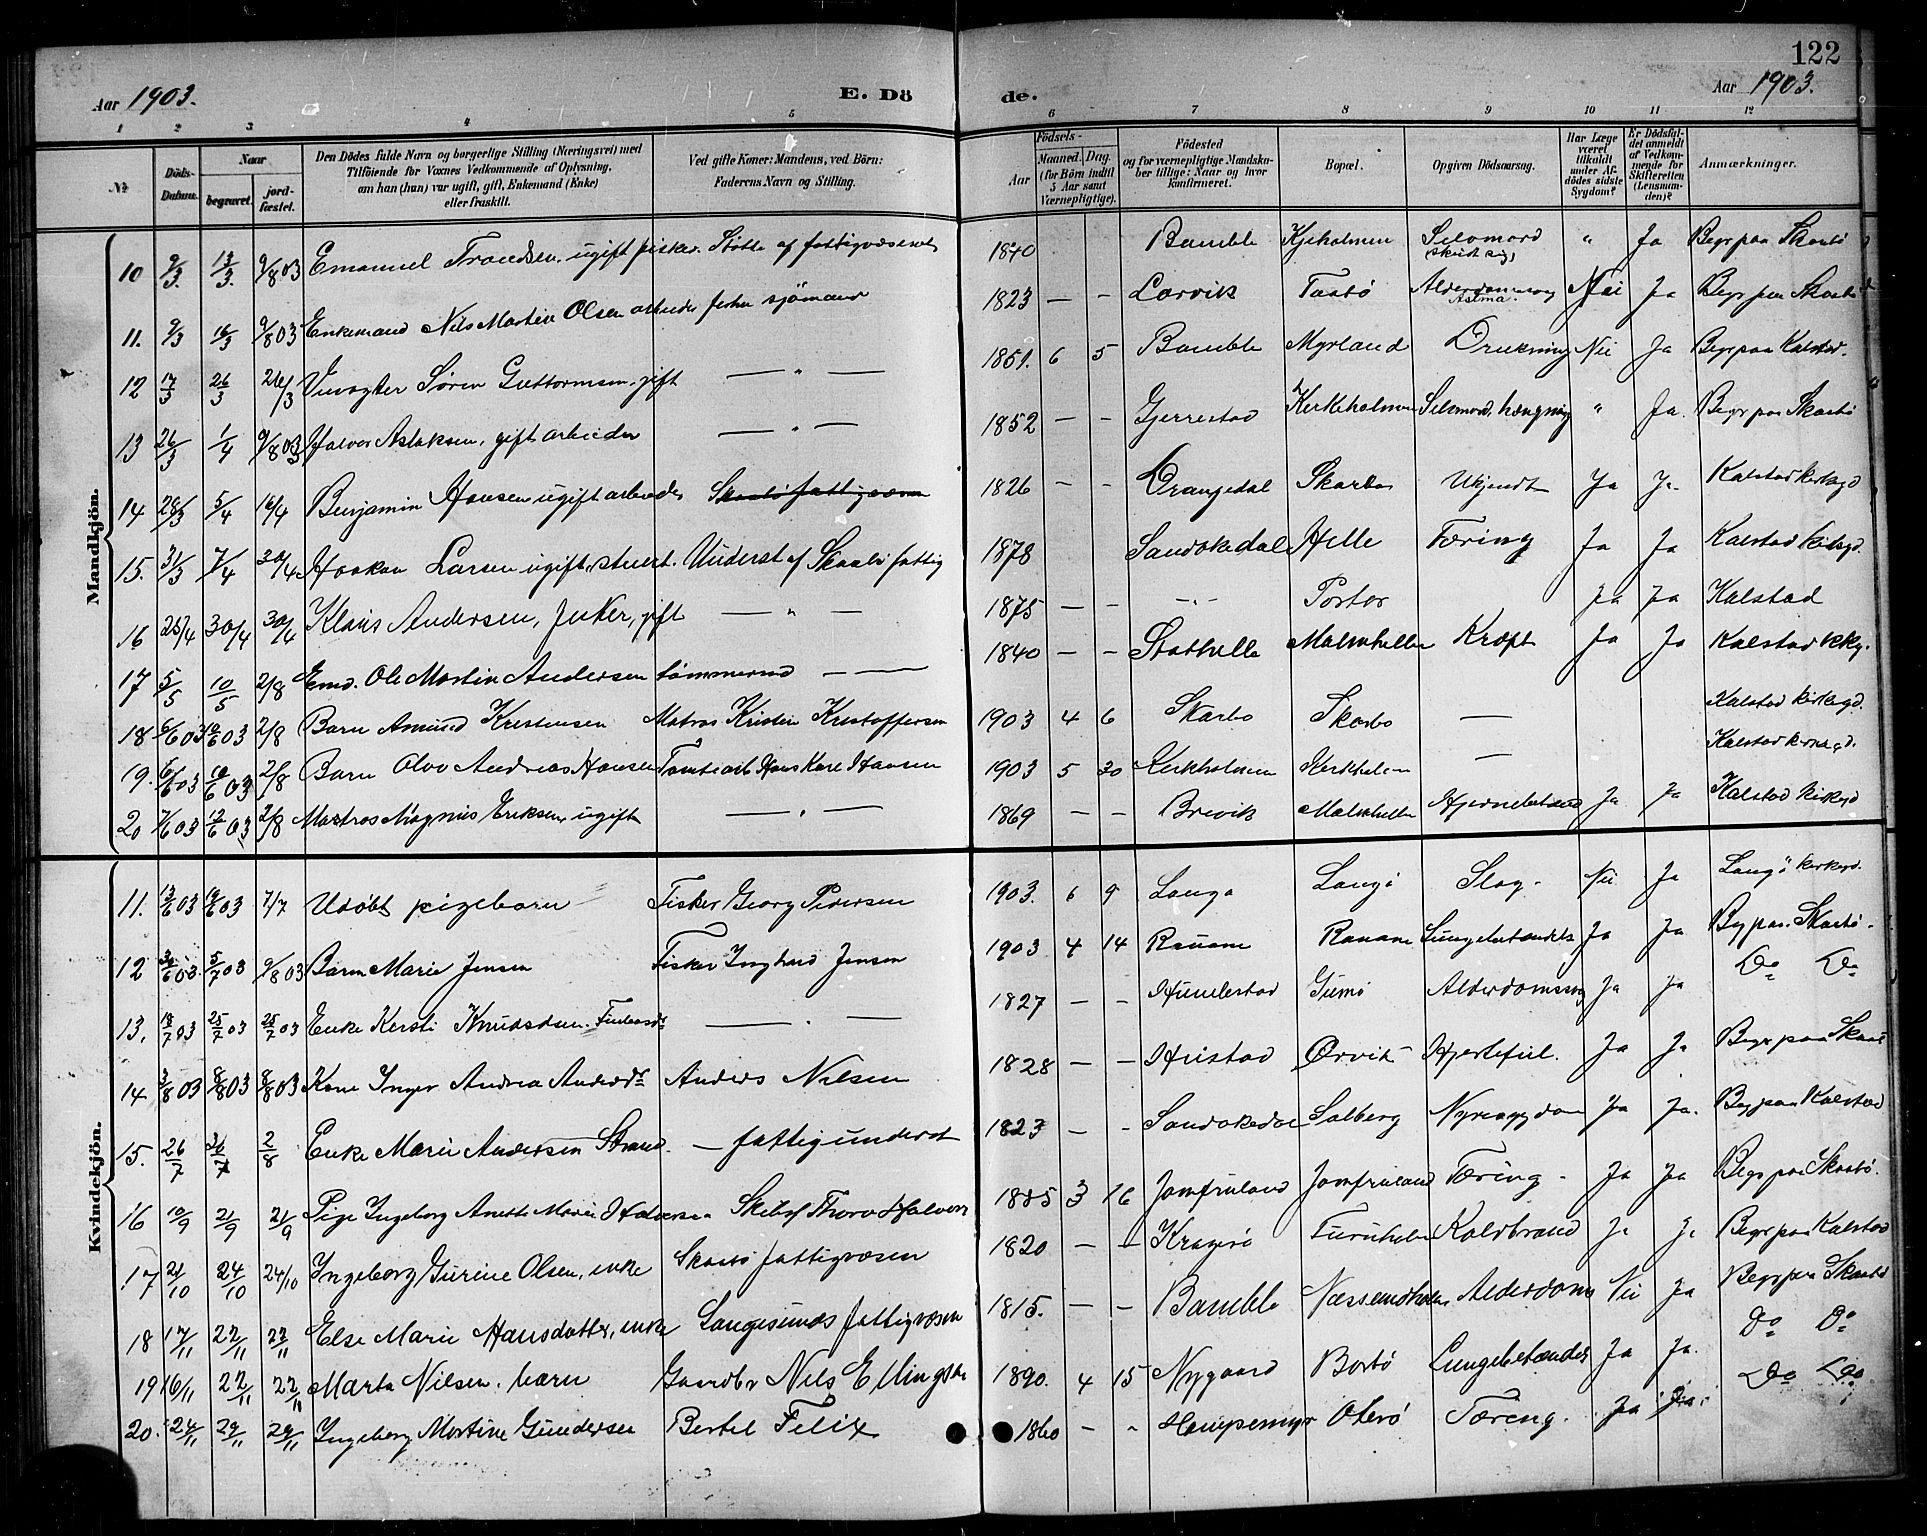 122
Aar 1903. E. Dö de. Aar 1903.
1 2 3 4 5 6 7 8 9 10 11 12
№ Döds-Datum. Naar begravet. jordfæstet. Den Dödes fulde Navn og borgerlige Stilling (Næringsvei) med Tilföiende for Voxnes Vedkommende af Oplysning, om han (hun) var ugift, gift, Enkemand (Enke) eller fraskilt. Ved gifte Koner: Mandens, ved Börn: Faderens Navn og Stilling. Födsels- Aar Maaned. Dag. (for Börn indtil 5 Aar samt Værnepligtige). Födested og for værnepligtige Mandskaber tillige: Naar og hvor konfirmeret. Bopæl. Opgiven Dödsaarsag. Har Læge været tilkaldt under Afdödes sidste Sygdom? Er Dödsfaldet anmeldt af Vedkommende for Skifteretten (Lensmanden)? Anmærkninger.
Mandkjön.
10 9/3. 13/3. 9/8 03 Emanuel Trondsen, ugift fisker. Støtte af fattigvæsenet 1840 Bamble Kjeholmen Selvmord skudt sig) " Ja Begr paa Skaatö
11. 9/3 16/3 9/8 03 Enkemand Nils Martin Olsen arbeider forhen sjömand 1823 — - Larvik Taatö Alderdomssvag Astma. Nei Ja Begr paa Skaatö
12 17/3 26/3 26/3 Vinagter Sören Guttormsen, gift — " — 1851. 6 5 Bamble Myrland Drukning Nei Ja Begr paa Kalstad.
13 26/3 1/4 9/8 03 Halvor Aslaksen, gift arbeider — " — 1852 — - Gjerrestad Kirkeholmen Selvmord, hængning " Ja. Begr paa Skaatö
14 28/3 5/4 16/4 Benjamin Hansen ugift arbeider Skaatö fattigvæsen 1826 - - Drangedal Skarbo Ukjendt Ja Ja Kalstad kirkegd
15. 31/3 7/4 30/4 Haakon Larsen ugift, stuert. Underst af Skaatö fattig 1878 Sandøkedal Helle Tæring Ja Ja Kalstad kirkegd.
16 25/4 30/4 30/4 Klaus Andersen, fisker, gift — " — 1875 — - - " - Portör Ja Ja Kalstad
17 5/5 10/5 2/8 Emd. Ole Martin Andersen tömmermd — — 1840 — - Stathelle Malmhellen Kræft Ja Ja Kalstad kkg.
18 6/6 03 10/6 03 2/8 Barn Amund Kristensen Matros Kristen Kristoffersen 1903 4 6 Skarbo Skarbo — Kalstad kirkegd.
19. 6/6 03 10/6 03 2/8 Barn Olav Andreas Hansen Tomtearb Hans Karl Hansen 1903 5 30 Kirkholmen Kirkholm — Kalstad kirkegd.
20 7/6 03 12/6 03 2/8 Matros Magnus Eriksen, ugift — " — 1869 — - Brevik Malmhellen Hjernebetænd Ja Ja Kalstad kirkegd
Kvindekjön.
11. 13/6 03 19/6 03 7/7 Udöbt pigebarn Fisker Georg Pedersen 1903. 6 9 Langö Langö Slag - Nei Ja Langö kirkegd.
12 30/6 03. 5/7 03 9/8 03 Barn Marie Jensen Fisker Ingvard Jensen 1903 4 14 Rauane Rauane Lungebetændels Ja Ja Beg paa Skaatö.
13. 18/7 03 25/7 03 25/7 03 Enke Kersti Knudsdsen. — " — 1827 — - Hullestad Gumö Alderdomssvag Ja Ja Do Do
14 3/8 03 8/8 03 8/8 03 Kone Inger Andrea Andersdr Anders Nilsen 1828 — — Hustad Ørvik Hjertefeil. Ja Ja Begr paa Skaat
15. 26/7 31/7 2/8 Enke Marie Andersen Strand. — fattigunderst 1823 — - Sandøkedal Salberg Nyresygdom Ja Ja. Beg paa Kalstad
16 10/9 21/9 21/9 Pige Ingeborg Anette Marie Halvorsen Skibsf Thorv Halvors 1885 3 16 Jomfruland Jomfruland Tæring - Ja Ja Begr paa Skaatö.
17 21/10 24/10 24/10 Ingeborg Gurine Olsen, enke Skaatö fattigvæsen 1820 — — Kragerö Furuholm Koldbrand Ja Ja Begr paa Kalstad
18 17/11 22/11 22/11 Else Marie Hansdatter, enke Langesunds fattigvæsen 1815. — - Bamble Næssundholm Alderdoms Nei Ja Begr paa Skaatö
19 16/11 22/11 22/11 Marta Nilsen. barn Gaardbr Nils Ellingsen 1890. 4 15 Nygaard Bortö Lungebetændels Ja Ja. Do Do
20. 24/11 29/11 29/11 Ingeborg Martine Gundersen Bertel Felix 1860 — - Hempemyr Oterö Tæring. Ja Ja. Do Do